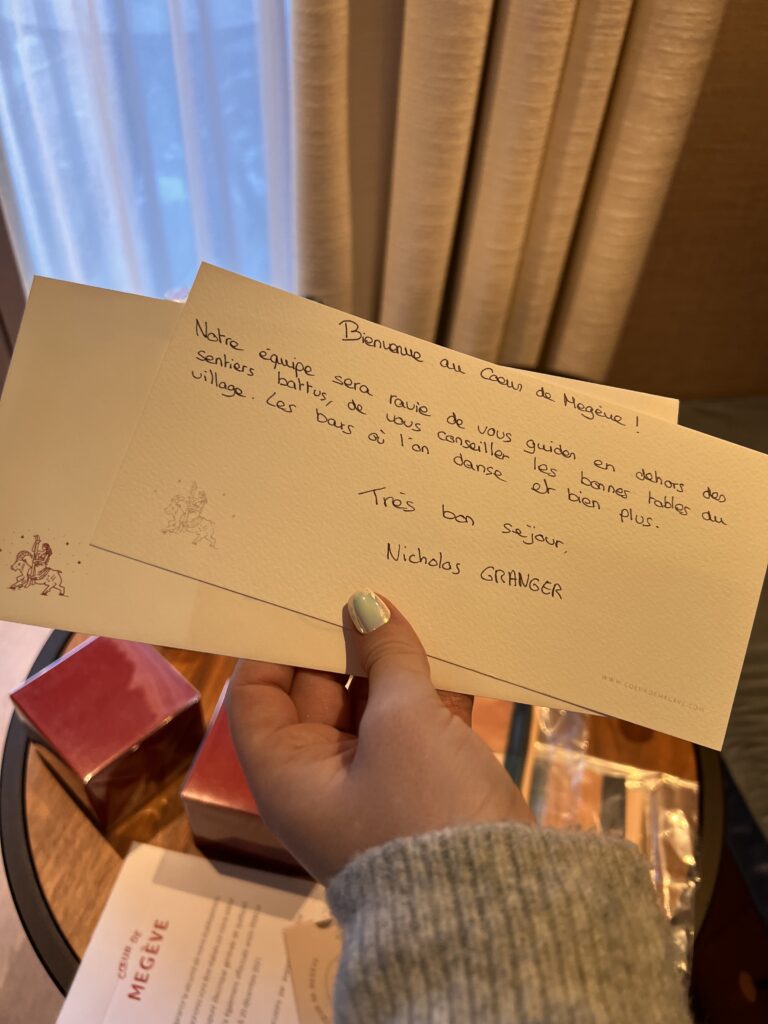 Bienvenue au Coeur de Megève !
Notre équipe sera ravie de vous guider en dehors des
sentiers battus, de vous conseiller les bonnes tables du
village. Les bars où l'on danse et bien plus.
Très bon séjour,
Nicholas GRANGER
WWW.COEURDEMEGEVE.COM
CŒUR DE
MEGÈVE